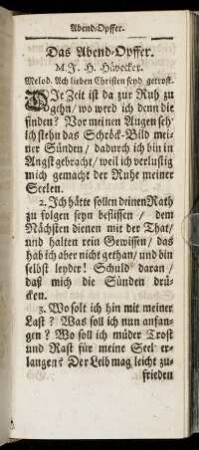 Abend-Opffer.
Das Abend-Opffer.
M. J. H. Håvecker.
Melod. Ach lieben Christen seyd getrost.
DJe Zeit ist da zur Ruh zu
gehn/ wo werd ich denn die
finden? Vor meinen Augen seh-
ich stehn das Schröck-Bild mei-
ner Sünden/ dadurch ich bin in
Angst gebracht/ weil ich verlustig
mich gemacht der Ruhe meiner
Seelen.
2. Jch hätte sollen deinen Rath
zu folgen seyn beflissen / dem
Nächsten dienen mit der That/
und halten rein Gewissen/ das
hab ich aber nicht gethan/ und bin
selbst leyder! Schuld daran/
daß mich die Sünden drü-
cken.
3. Wo solt ich hin mit meiner
Last? Was soll ich nun anfan-
gen? Wo soll ich müder Trost
und Rast für meine Seel er-
langen? Der Leib mag leicht zu-
frieden